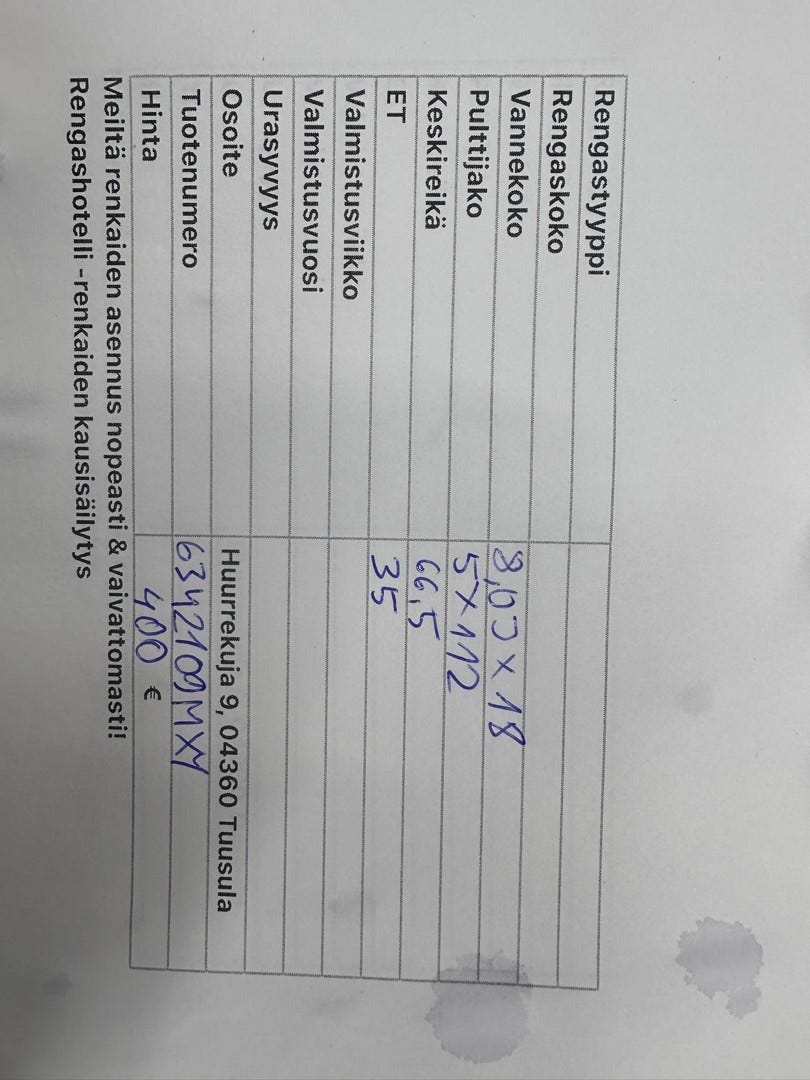 Rengastyyppi
Rengaskoko
Vannekoko 8,00 x 18
Pulttijako 5x112
Keskireikä 66,5
ET 35
Valmistusviikko
Valmistusvuosi
Urasyvyys
Osoite Huurrekuja 9, 04360 Tuusula
Tuotenumero 6342109MXY
Hinta 400 €
Meiltä renkaiden asennus nopeasti & vaivattomasti!
Rengashotelli -renkaiden kausisäilytys